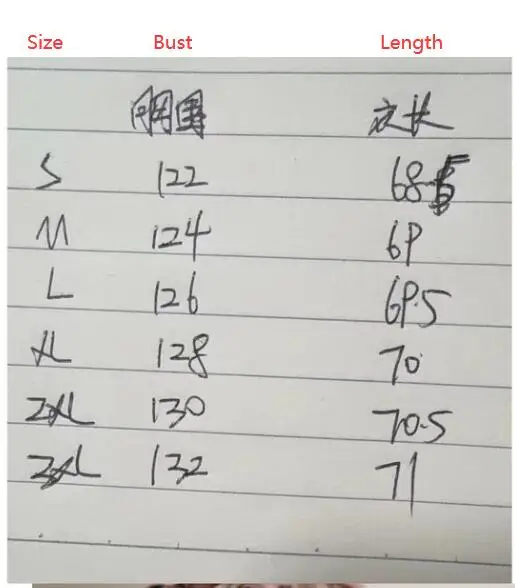 Size Bust Length
胸围 衣长
S 122 68.5
M 124 69
L 126 69.5
XL 128 70
2XL 130 70.5
3XL 132 71